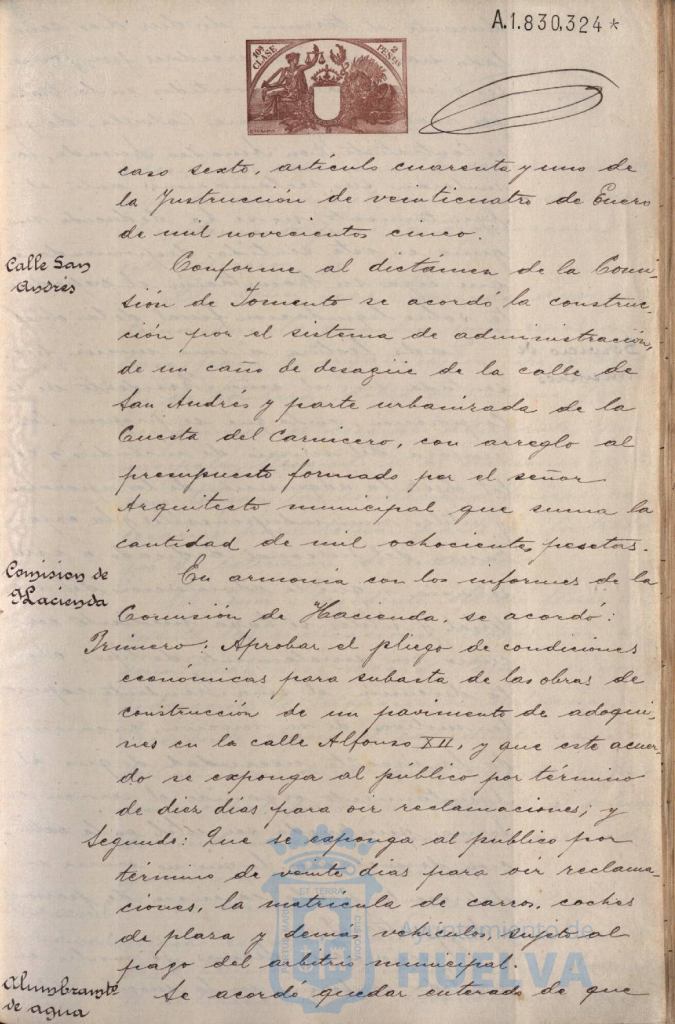 A.1.830,324*
10ª CLASE
2 PESTAS
caso sexto, artículo cuarenta y uno de
la Instrucción de veinticuatro de Enero
de mil novecientos cinco.
Calle San
Andrés
Conforme al dictámen de la Comi-
sión de Fomento se acordó la construc-
ción por el sistema de administración,
de un caño de desagüe de la calle de
San Andrés y parte urbanizada de la
Cuesta del Carnicero, con arreglo al
presupuesto formado por el señor
Arquitecto municipal que suma la
cantidad de mil ochocientas pesetas.
Comision de
Hacienda
En armonía con los informes de la
Comisión de Hacienda, se acordó:
Primero: Aprobar el pliego de condiciones
económicas para subasta de las obras de
construcción de un pavimento de adoqui-
nes en la calle Alfonso XII, y que este acuer-
do se exponga al público por término
de diez días para oir reclamaciones; y
Segundo: Que se exponga al público por
término de veinte dias para oir reclama-
ciones, la matrícula de carros, coches
de plaza y demás vehículos, sujeto al
pago del arbitrio municipal.
Alumbramto
de agua
Se acordó quedar enterado de que
Ayuntamiento de
HUELVA